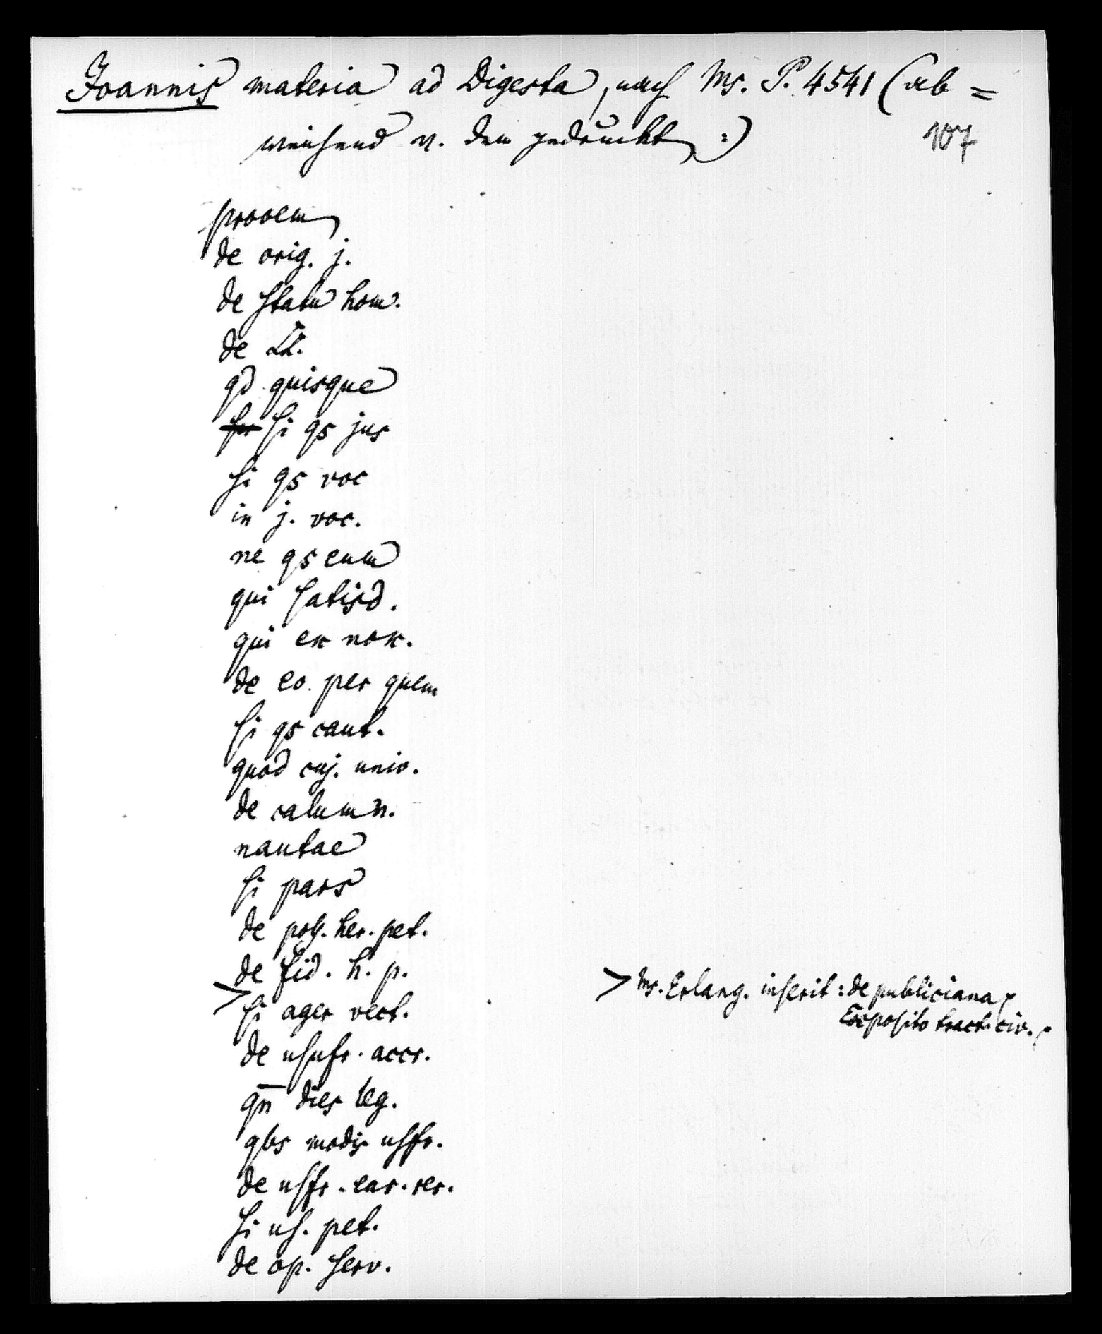 Joannis materia ad Digesta, nach Ms. P. 4541 (ab=
107
weichend v. den gedruckt :)
prooem
de orig. j.
de statu hom.
de LL.
qd quisque
si qs jus
si qs voc
in j. voc.
ne qs eum
qui satisd.
qui ex nox.
de eo per quem
si qs caut.
quod cuj. univ.
de calumn.
nautae
si pars
de poss. her. pet.
de fid. h. p.
> si ager vect.
> Ms. Erlang. inserit: de publiciana,
Exposito tract. civ.
de usufr. accr.
qn dies leg.
qbs modis usfr.
de usfr. ear. rer.
si us. pet.
de op. serv.